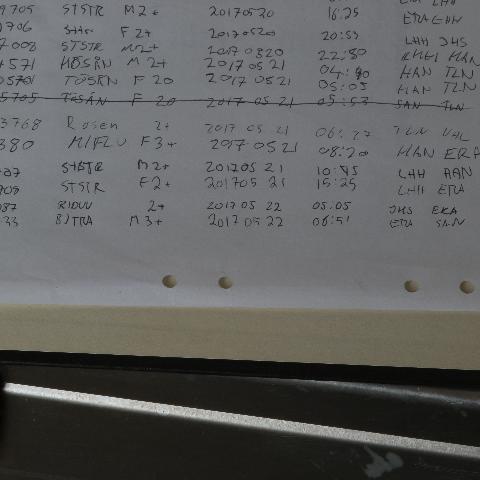 9705 STSTR M 2+ 20170520 16:25
0706 STSTR F 2+ 20170520 20:53 LHH JHS
7008 STSTR M2+ 20170820 22:30
4571 HÖSRN M 2+ 20170521 04:40 HAN TLN
05701 TÖSRN F 20 20170521 05:05 HAN TLN
5705 TÖSÅN F 20 20170521 05:53 SAN TLN
3768 Rosen 2+ 20170521 06:27 TLN
380 MIFLU F 3+ 20170521 08:20 HAN ERA
STSTR M2+ 20170521 10:45 LHH HAN
909 STSTR F 2+ 20170521 15:25 LHH ERA
087 2+ 20170522 05:05 JHS EKA
33 BJTRA M 3+ 20170522 06:51 ERA